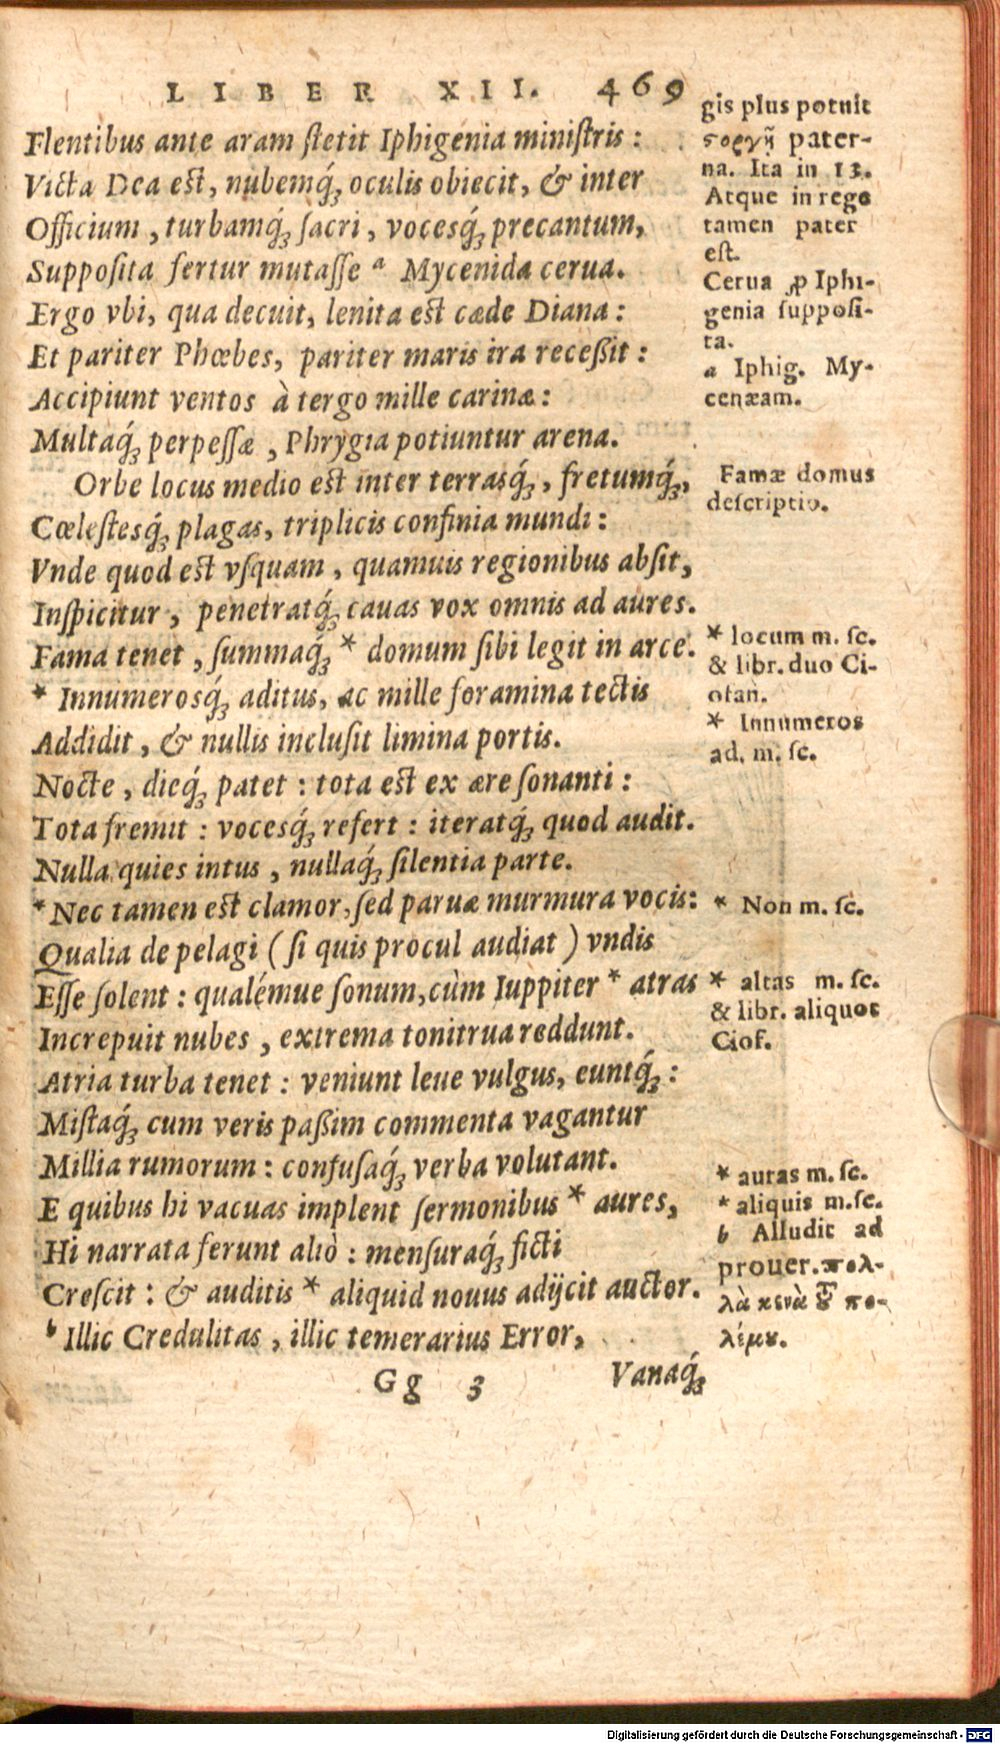 LIBER XII. 469
Flentibus ante aram ſtetit Iphigenia miniſtris :
Victa Dea est, nubemq́ꝫ oculis obiecit, & inter
Officium , turbamq́ꝫ ſacri , vocesq́ꝫ precantum,
Suppoſita fertur mutaſſe ᵃ Mycenida cerua.
Ergo vbi, qua decuit, lenita est cæde Diana :
Et pariter Phœbes, pariter maris ira receßit :
Accipiunt ventos à tergo mille carinæ :
Multaq́ꝫ perpeſſæ , Phrygia potiuntur arena.
Orbe locus medio est inter terrasq́ꝫ, fretumq́ꝫ,
Cœleſtesq́ꝫ plagas, triplicis confinia mundi :
Vnde quod est vſquam , quamuis regionibus abſit,
Inſpicitur , penetratq́ꝫ cauas vox omnis ad aures.
Fama tenet , ſummaq́ꝫ * domum ſibi legit in arce.
* Innumerosq́ꝫ aditus, ac mille foramina tectis
Addidit , & nullis incluſit limina portis.
Nocte , dieq́ꝫ patet : tota est ex ære ſonanti :
Tota fremit : vocesq́ꝫ refert : iteratq́ꝫ quod audit.
Nulla quies intus , nullaq́ꝫ ſilentia parte.
* Nec tamen est clamor, ſed paruæ murmura vocis:
Qualia de pelagi ( ſi quis procul audiat ) vndis
Eſſe ſolent : qualémue ſonum, cùm Iuppiter * atras
Increpuit nubes , extrema tonitrua reddunt.
Atria turba tenet : veniunt leue vulgus, euntq́ꝫ :
Miſtaq́ꝫ cum veris paßim commenta vagantur
Millia rumorum : confuſaq́ꝫ verba volutant.
E quibus hi vacuas implent ſermonibus * aures,
Hi narrata ferunt aliò : menſuraq́ꝫ ficti
Creſcit : & auditis * aliquid nouus adijcit auctor.
ᵇ Illic Credulitas , illic temerarius Error,
Gg 3 Vanaq́ꝫ
gis plus potuit
ϛοργῇ pater-
na. Ita in 13.
Atque in rege
tamen pater
eſt.
Cerua ꝓ Iphi-
genia ſuppoſi-
ta.
a Iphig. My-
cenæam.
Famæ domus
deſcriptio.
* locum m. ſc.
& libr. duo Ci-
ofan.
* Innumeros
ad. m. ſc.
* Non m. ſc.
* altas m. ſc.
& libr. aliquot
Ciof.
* auras m. ſc.
* aliquis m.ſc.
b Alludit ad
prouer. πολ-
λὰ κενὰ τȣ͂ πο-
λέμȣ.
Digitalisierung gefördert durch die Deutsche Forschungsgemeinschaft - DFG